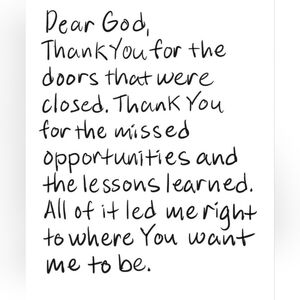 Dear God,
Thank You for the
doors that were
closed. Thank You
for the missed
opportunities and
the lessons learned.
All of it led me right
to where You want
me to be.